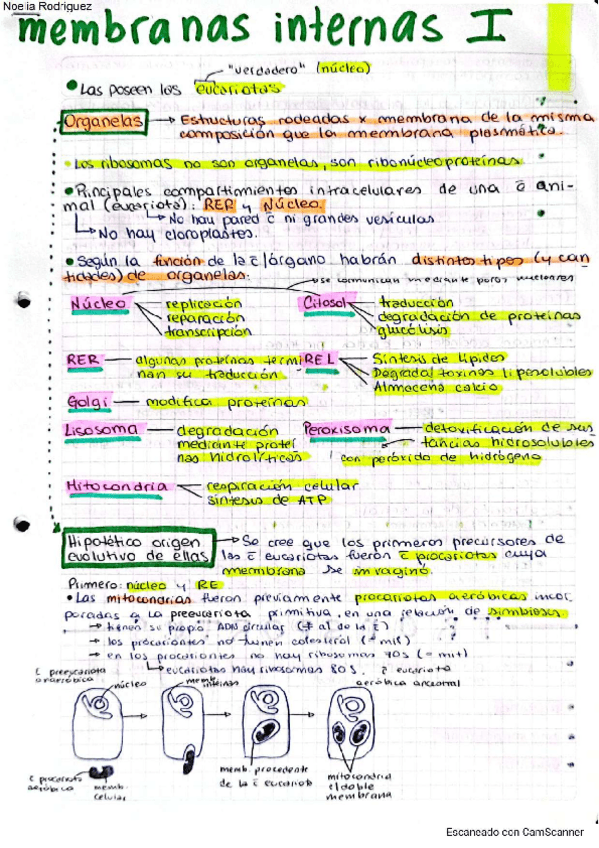 Noelia Rodriguez
membranas internas I
"verdadero" (núcleo)
• Las poseen los eucariotas
Organelas → Estructuras rodeadas x membrana de la misma
composición que la membrana plasmática.
• Los ribosomas no son organelas, son ribonúcleoproteínas
• Principales compartimientos intracelulares de una c̄ ani-
mal (eucariota): RER y Núcleo.
→ No hay pared c̄ ni grandes vesículas
→ No hay cloroplastos.
• Según la función de la c̄/órgano habrán distintos tipos (y can
tidades) de organelas:
se comunican mediante poros nucleares
Núcleo replicación
reparación
transcripción
Citosol traducción
degradación de proteínas
glucólisis
RER algunas proteínas termi
nan su traducción
REL Síntesis de lípidos
Degrada toxinas liposolubles
Almacena calcio
Golgi modifica proteínas
Lisosoma degradación
mediante proteí
nas hidrolíticas
Peroxisoma detoxificación de sus
tancias hidrosolubles
con peróxido de hidrógeno
Mitocondria respiración celular
síntesis de ATP
Hipotético origen
evolutivo de ellas
→ Se cree que los primeros precursores de
las c̄ eucariotas fueron c̄ procariotas cuya
membrana se invaginó.
Primero: núcleo y RE
• Las mitocondrias fueron previamente procariotas aeróbicas incor
poradas a la preeucariota primitiva, en una relación de simbiosis
→ tienen su propio ADN circular (≠ al de la c̄)
→ los procariontes no tienen colesterol (= mit)
→ en los procariontes no hay ribosomas 70s (= mit)
→ eucariotas hay ribosomas 80s.
c̄ preeucariota
anaeróbica
núcleo
memb.
internas
c̄ eucariota
aeróbica ancestral
c̄ procariota
aeróbica
memb.
celular
memb. procedente
de la c̄ eucariota
mitocondria
c/doble
membrana
Escaneado con CamScanner